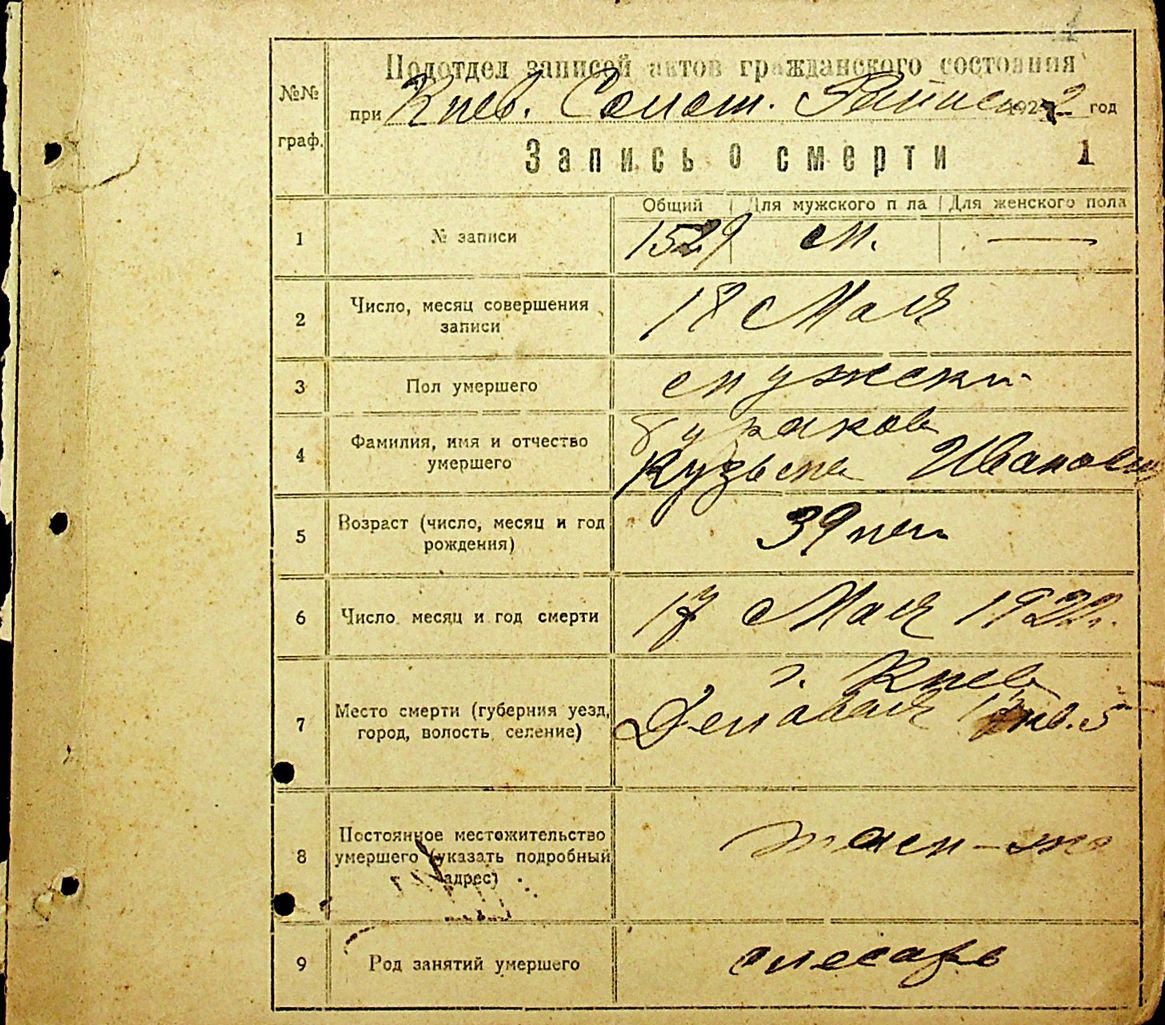 Подотдел записей актов гражданского состояния
№№
граф.
при Киев. 1922 год
Запись о смерти 1
Общий Для мужского п ла Для женского пола
1 № записи 1529 м. —
2 Число, месяц совершения
записи
18 Мая
3 Пол умершего
4 Фамилия, имя и отчество
умершего
Бураков
Кузьма Иванович
5 Возраст (число, месяц и год
рождения)
39 лет
6 Число месяц и год смерти 17 Мая 1922 г.
7 Место смерти (губерния уезд,
город, волость селение)
г. Киев
кв. 5
8 Постоянное местожительство
умершего (указать подробный
адрес)
там-же
9 Род занятий умершего слесарь